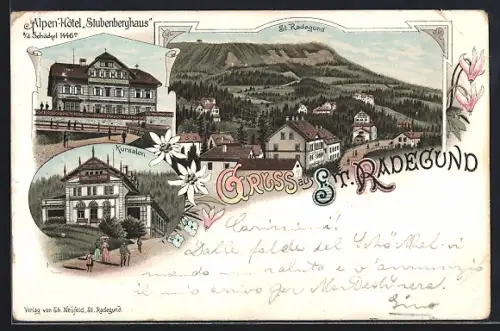 Alpen-Hôtel „Stubenberghaus"
a/d Schöckel 1446m
St. Radegund
Kursalon
GRUSS aus ST. RADEGUND
Carissima!
Dalle falde del Schökel vi
mando un saluto e v'annunzio
il mio arrivo per Martedì sera.
Gino
Verlag von Ed. Neufeld, St. Radegund.